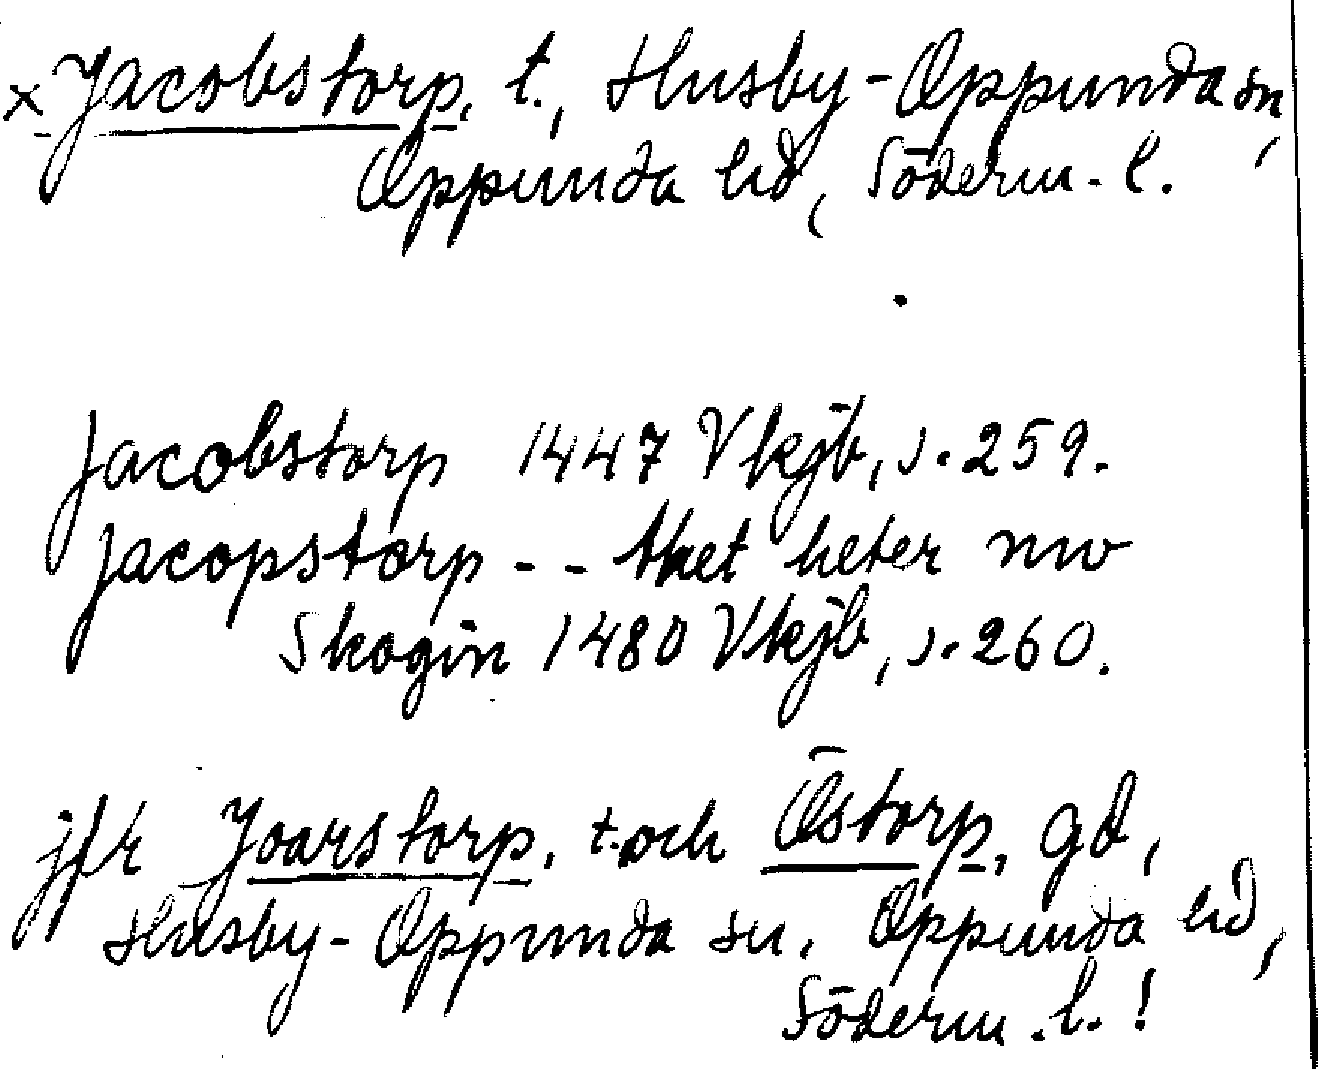 x Jacobstorp, t., Husby-Oppunda sn,
Oppunda hd, Söderm. l.
Jacobstorp 1447 Vkjb, s. 259.
Jacopstorp - - thet heter nw
Skogin 1480 Vkjb, s. 260.
jfr Joarstorp, t. och Östorp, gd,
Husby-Oppunda sn, Oppunda hd,
Söderm. l.!